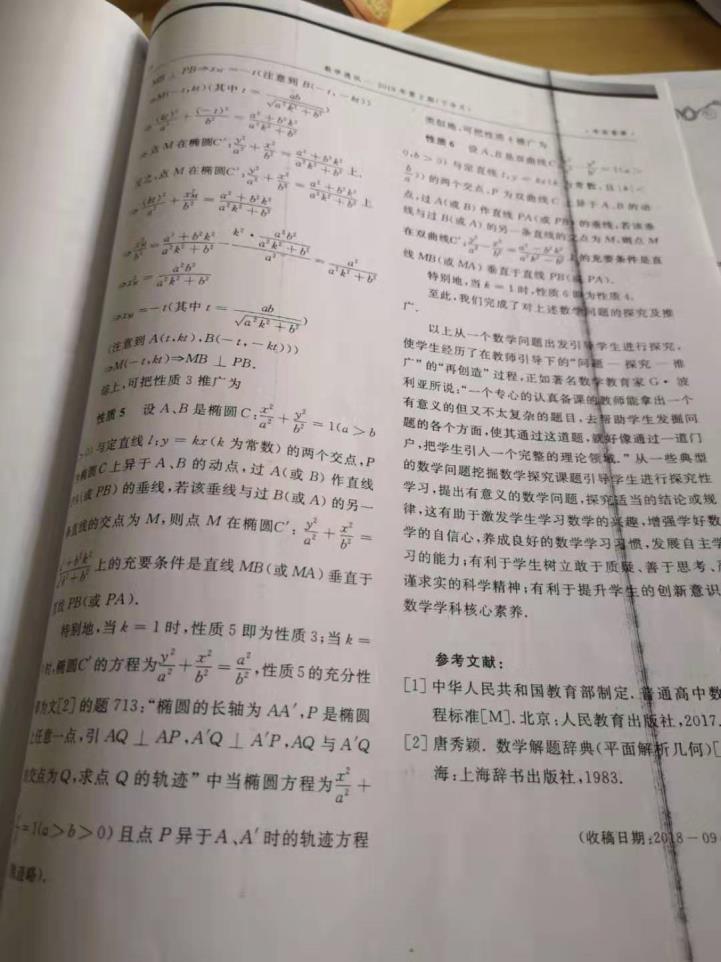 数学通讯 — 2019年第2期(下半月)
·专论荟萃·
MB ⊥ PB⇒x_M = −t(注意到 B(−t, −kt))
⇒M(−t, kt)(其中 t = ab/√(a²k²+b²))
⇒ (kt)²/a² + (−t)²/b² = (a²+b²k²)/(a²k²+b²)
⇒点 M 在椭圆C′: y²/a² + x²/b² = (a²+b²k²)/(a²k²+b²) 上.
反之,点 M 在椭圆C′: y²/a² + x²/b² = (a²+b²k²)/(a²k²+b²) 上
⇒ (kt)²/a² + x_M²/b² = (a²+b²k²)/(a²k²+b²)
⇒ x_M²/b² = (a²+b²k²)/(a²k²+b²) − (k² · a²b²/(a²k²+b²))/a² = a²/(a²k²+b²)
⇒x_M² = a²b²/(a²k²+b²)
⇒x_M = −t(其中 t = ab/√(a²k²+b²))
(注意到 A(t,kt),B(−t,−kt)))
⇒M(−t,kt)⇒MB ⊥ PB.
综上,可把性质 3 推广为
性质 5 设 A、B 是椭圆 C: x²/a² + y²/b² = 1(a>b
>0)与定直线 l:y = kx(k 为常数)的两个交点,P
为椭圆 C 上异于 A、B 的动点,过 A(或 B)作直线
PA(或 PB)的垂线,若该垂线与过 B(或 A)的另一
条直线的交点为 M,则点 M 在椭圆C′: y²/a² + x²/b² =
(a²+b²k²)/(a²k²+b²) 上的充要条件是直线 MB(或 MA)垂直于
直线 PB(或 PA).
特别地,当 k = 1 时,性质 5 即为性质 3;当 k =
时,椭圆C′的方程为 y²/a² + x²/b² = a²/b²,性质 5 的充分性
即为文[2]的题 713:“椭圆的长轴为 AA′,P 是椭圆
上任意一点,引 AQ ⊥ AP,A′Q ⊥ A′P,AQ 与 A′Q
的交点为 Q,求点 Q 的轨迹”中当椭圆方程为 x²/a² +
= 1(a>b>0)且点 P 异于 A、A′ 时的轨迹方程
略).
类似地,可把性质 4 推广为
性质 6 设 A、B 是双曲线C: x²/a² − y²/b² = 1(a>
0,b>0)与定直线 l:y = kx(k 为常数,且|k|<
b/a)的两个交点,P 为双曲线 C 上异于 A、B 的动
点,过 A(或 B)作直线 PA(或 PB)的垂线,若该垂
线与过 B(或 A)的另一条直线的交点为 M,则点 M
在双曲线C′: 的充要条件是直
线 MB(或 MA)垂直于直线 PB(或 PA).
特别地,当 k = 1 时,性质 6 即为性质 4.
至此,我们完成了对上述数学问题的探究及推
广.
以上从一个数学问题出发引导学生进行探究,
使学生经历了在教师引导下的“问题 — 探究 — 推
广”的“再创造”过程,正如著名数学教育家 G·波
利亚所说:“一个专心的认真备课的教师能拿出一个
有意义的但又不太复杂的题目,去帮助学生发掘问
题的各个方面,使其通过这道题,就好像通过一道门
户,把学生引入一个完整的理论领域.”从一些典型
的数学问题挖掘数学探究课题引导学生进行探究性
学习,提出有意义的数学问题,探究适当的结论或规
律,这有助于激发学生学习数学的兴趣,增强学好数
学的自信心,养成良好的数学学习习惯,发展自主学
习的能力;有利于学生树立敢于质疑、善于思考、
谨求实的科学精神;有利于提升学生的创新意识
数学学科核心素养.
参考文献:
[1] 中华人民共和国教育部制定. 普通高中数
程标准[M]. 北京:人民教育出版社,2017.
[2] 唐秀颖. 数学解题辞典(平面解析几何)[
海:上海辞书出版社,1983.
(收稿日期:2018-09